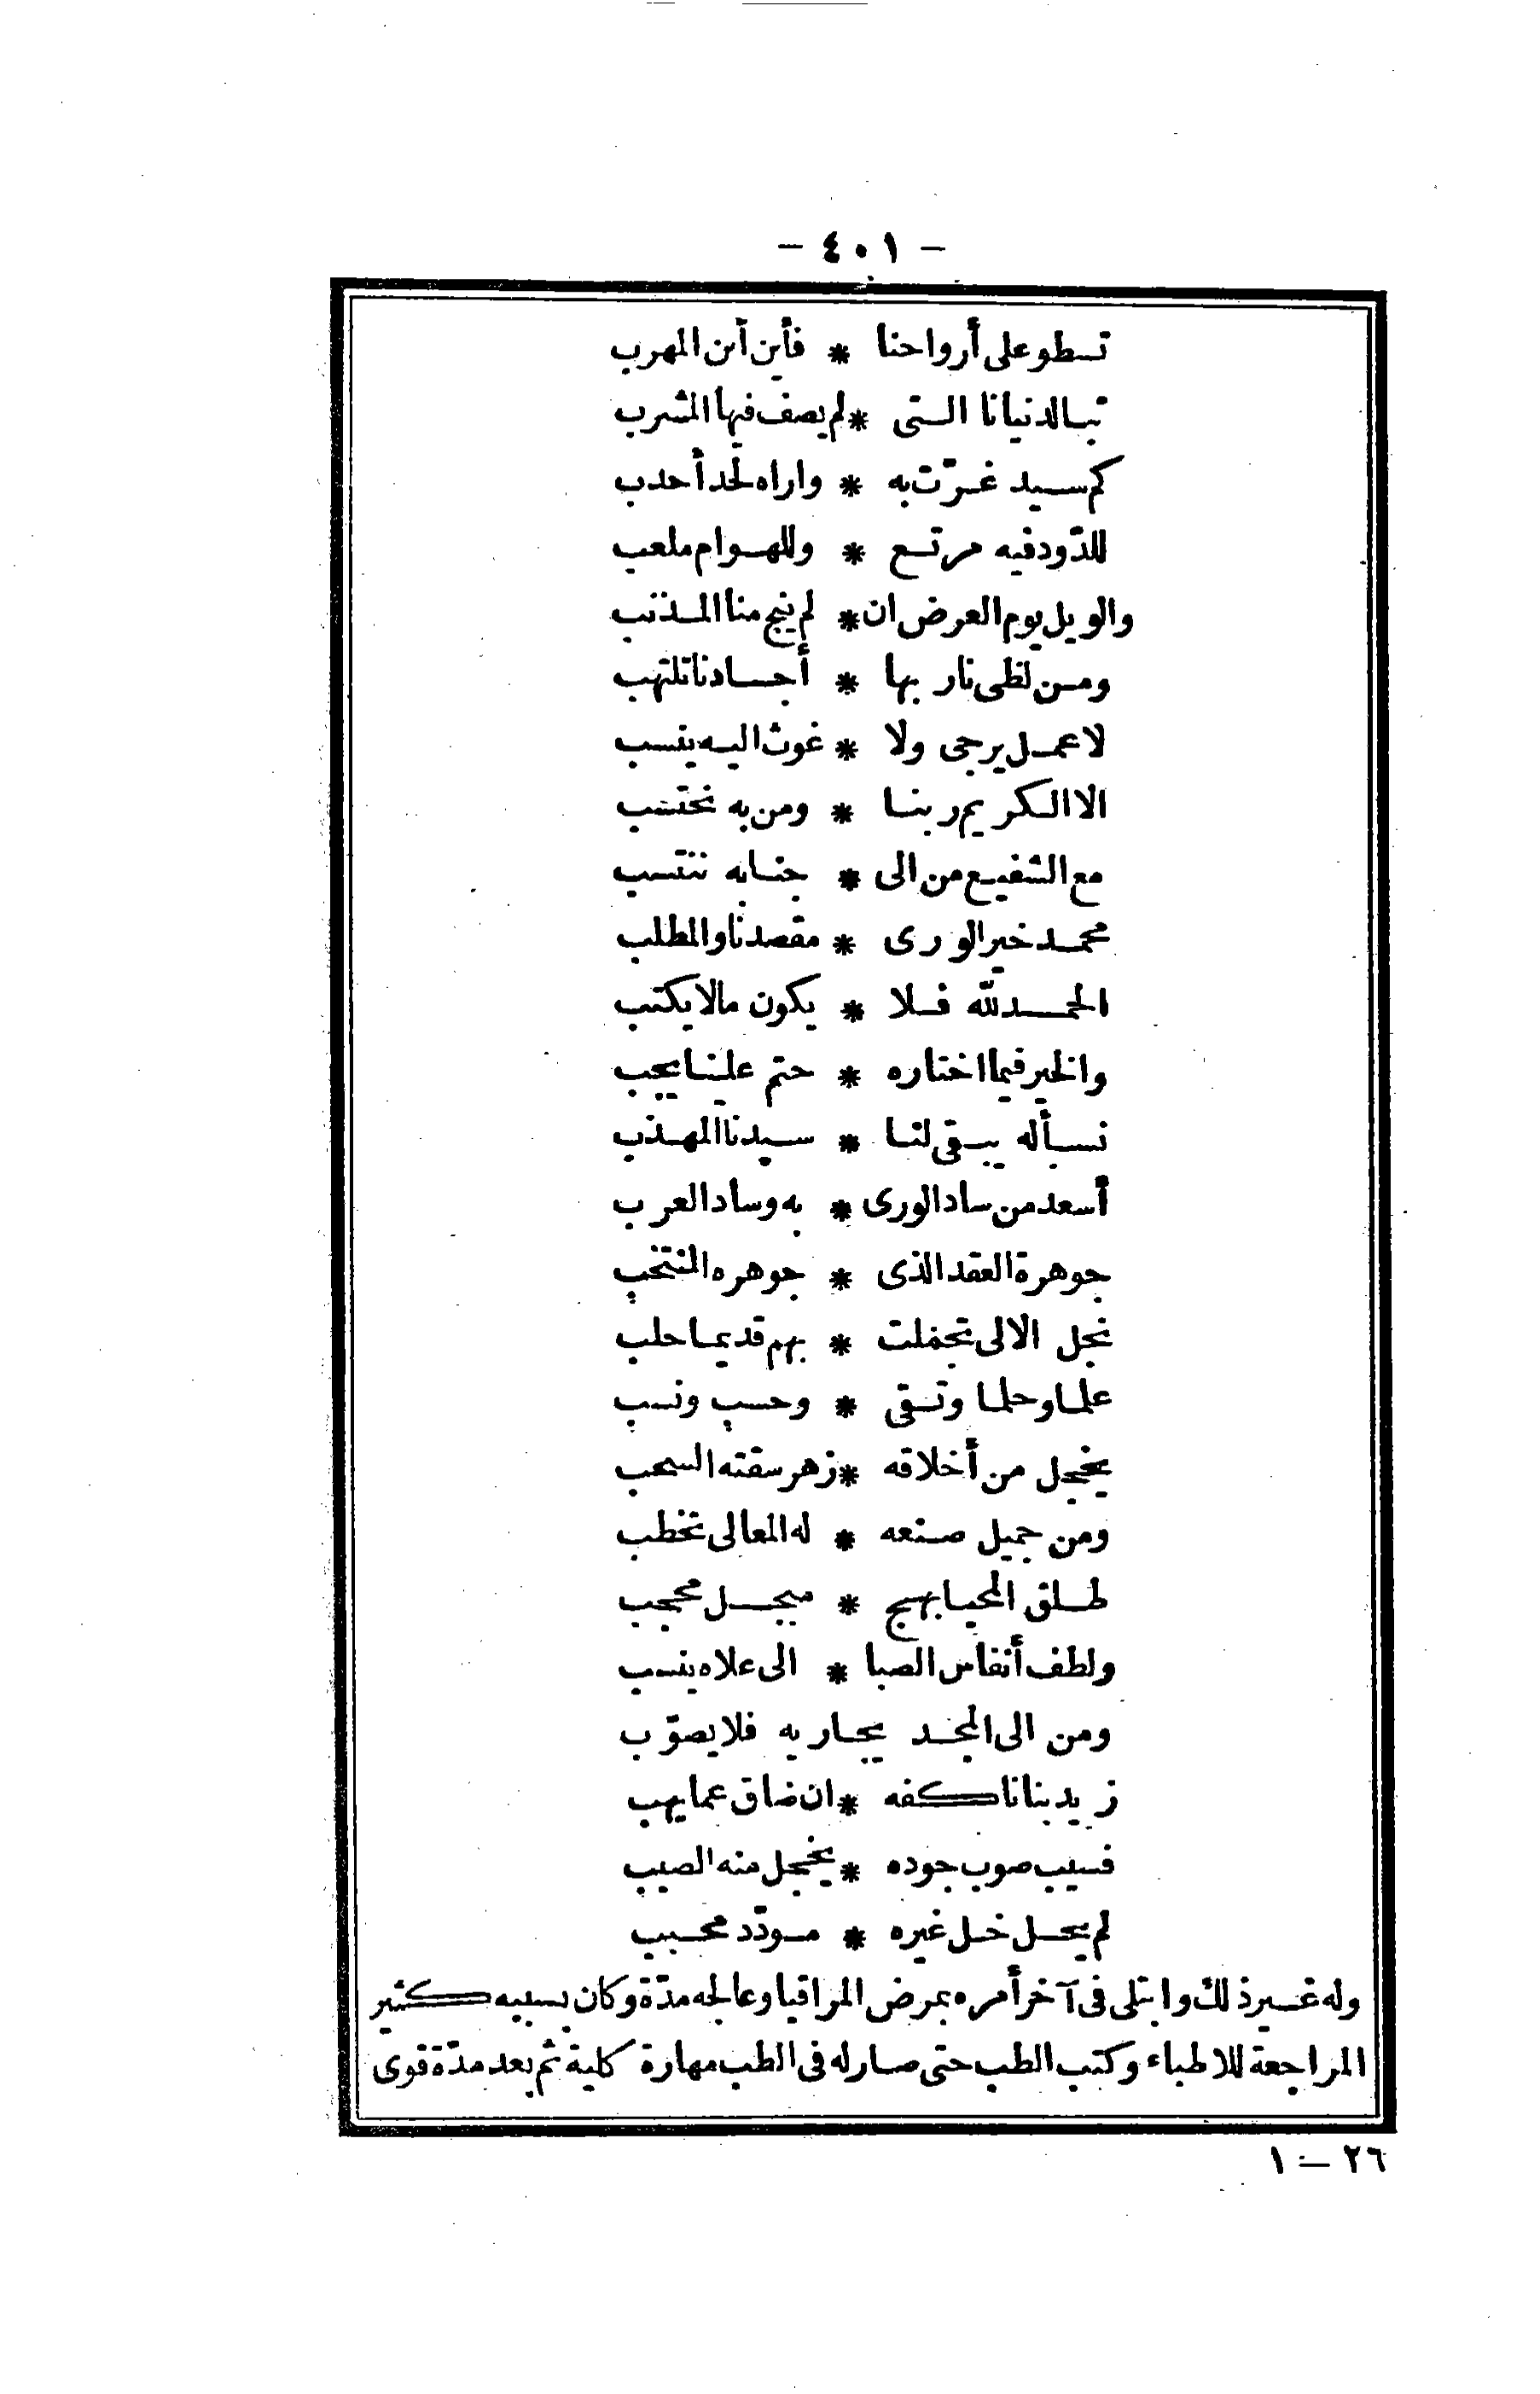 - ٤٠١ -
تسطو على أرواحنا * فأين أين المهرب
تبا لدنيانا التى * لم يصف فيها المشرب
كم سيد غرّت به * واراه لحد أحدب
للدّود فيه مرتع * وللهوام ملعب
والويل يوم العرض ان * لم ينج منا المذنب
ومن لظى نار بها * أجسادنا تلتهب
لا عمل يرجى ولا * غوث اليه ينسب
الا الكريم ربنا * ومن به نحتسب
مع الشفيع من الى * جنابه ننتسب
محمد خير الورى * مقصدنا والمطلب
الحمد لله فلا * يكون مالا يكتب
والخير فيما اختاره * حتم علينا يجب
نسأله يبقى لنا * سيدنا المهذب
أسعد من ساد الورى * به وساد العرب
جوهرة العقد الذى * جوهره المنتخب
نجل الالى تجملت * بهم قديما حلب
علما وحلما وتقى * وحسب ونسب
يخجل من أخلاقه * زهر سقته السحب
ومن جميل صنعه * له المعالى تخطب
طلق المحيا بهج * مبجل محجب
ولطف أنفاس الصبا * الى علاه ينسب
ومن الى المجد يجاريه فلا يصوّب
زيد بنانا كفه * ان ضاق عما يهب
فسيب صوب جوده * يخجل منه الصيب
لم يحل خل غيره * مودّد محبب
وله غير ذلك وابتلى فى آخر أمره بمرض المراقيا وعالجه مدّة وكان بسببه كثير
المراجعة للاطباء وكتب الطب حتى صار له فى الطب مهارة كلية ثم بعد مدّة قوى
٢٦ - ١